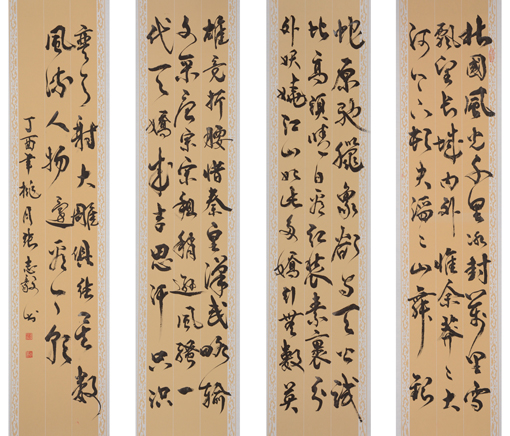 北國風光千里冰封萬里雪
飄望長城內外惟余莽〻大
河上下頓失滔〻山舞銀
蛇原馳臘象欲與天公試
比高須晴日看紅裝素裹分
外妖嬈江山如此多嬌引無數英
雄競折腰惜秦皇漢武略輸
文采唐宗宋祖稍遜風騷一
代天嬌成吉思汗只識
彎弓射大雕俱往矣數
風流人物還看今朝
丁酉年桃月張志毅書